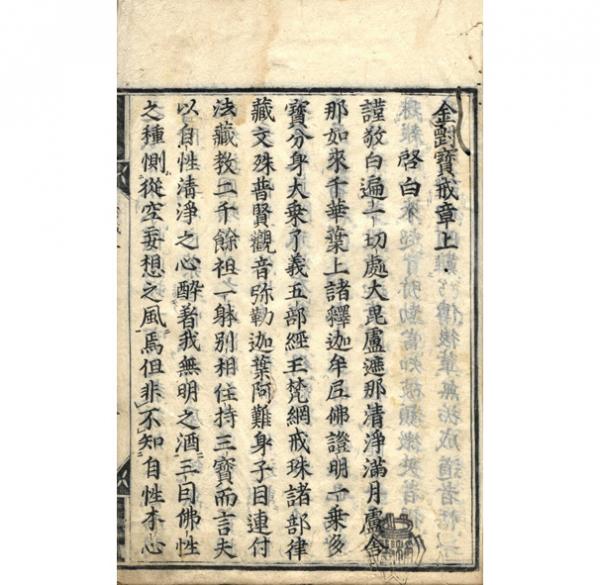 金剛寶戒章上
啓白
謹敬白遍一切處大毘盧遮那清淨滿月盧舍
那如來千華葉上諸釋迦牟尼佛證明一乘多
寶分身大乘了義五部經王梵網戒珠諸部律
藏文殊普賢觀音弥勒迦葉阿難身子目連付
法藏教二千餘祖一躰別相住持三寶而言夫
以自性清淨之心醉著我無明之酒三目佛性
之種惻從空妄想之風焉但非不知自性本心